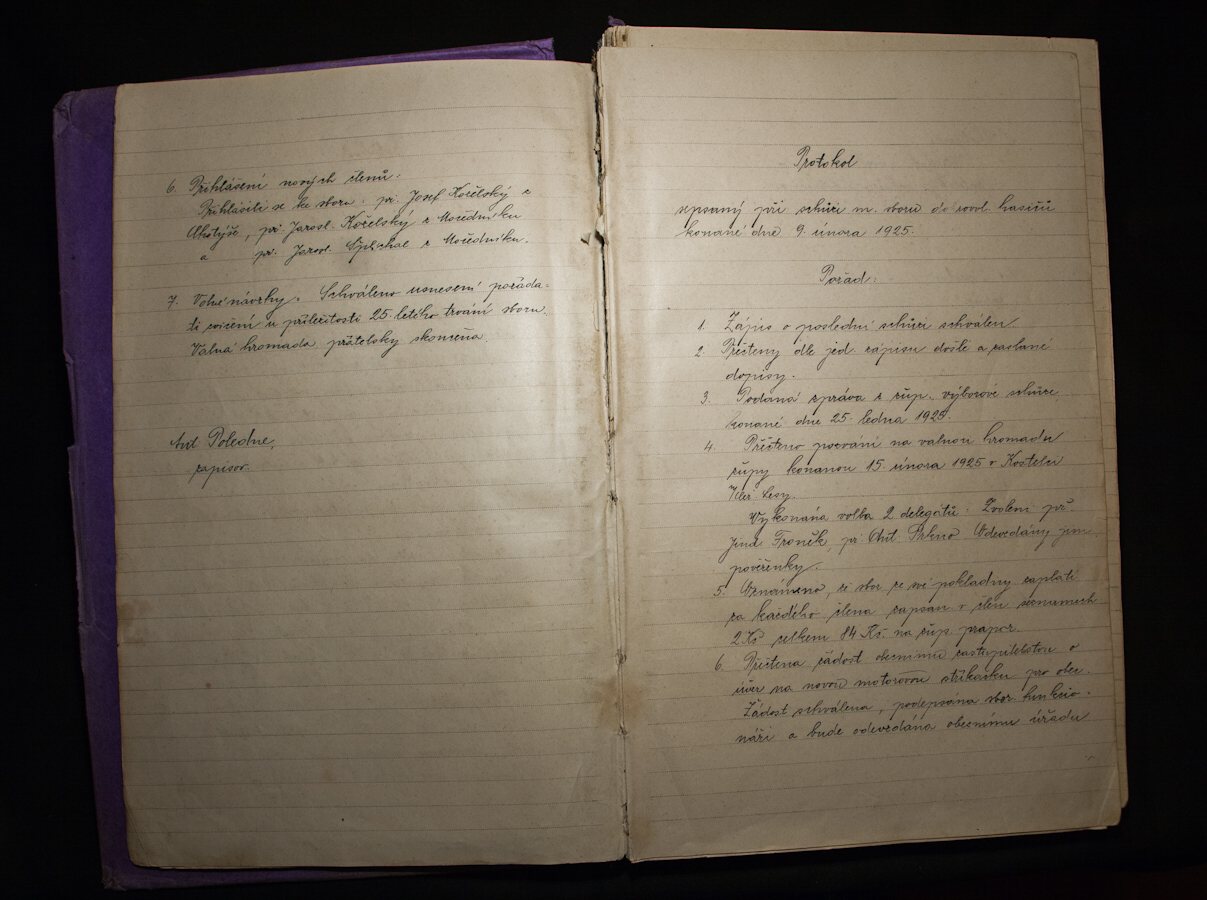 6. Přihlášení nových členů:
Přihlásili se ke sboru: př. Josef Kořelský z
Chotýše, př. Jarosl. Kořelský z
a př. Jarosl. Špichal z
7. Volné návrhy. Schváleno usnesení pořáda-
ti cvičení u příležitosti 25. letého trvání sboru.
Valná hromada přátelsky skončena.
Ant. Poledne,
zapisov.
Protokol
sepsaný při schůzi m. sboru dobrovol. hasičů
konané dne 9. února 1925.
Pořad:
1. Zápis o poslední schůzi schválen.
2. Přečteny dle jed. zápisu došlé a zaslané
dopisy.
3. Podána zpráva z žup. výborové schůze
konané dne 25. ledna 1925.
4. Přečteno pozvání na valnou hromadu
župy konanou 15. února 1925 v Kostelci
Lesy.
Vykonána volba 2 delegátů: Zvoleni př.
Jind. Froněk, př. Ant. Odevzdány jim
pověřenky.
5. Oznámeno, že sbor ze své pokladny zaplatí
za každého člena zapsan. v člen. seznamech
2 Kč celkem 84 Kč. na žup. prapor.
6. Přečtena žádost obecnímu zastupitelstvu o
úvěr na novou motorovou stříkačku pro obec.
Žádost schválena, podepsána sbor. funkcio-
náři a bude odevzdána obecnímu úřadu